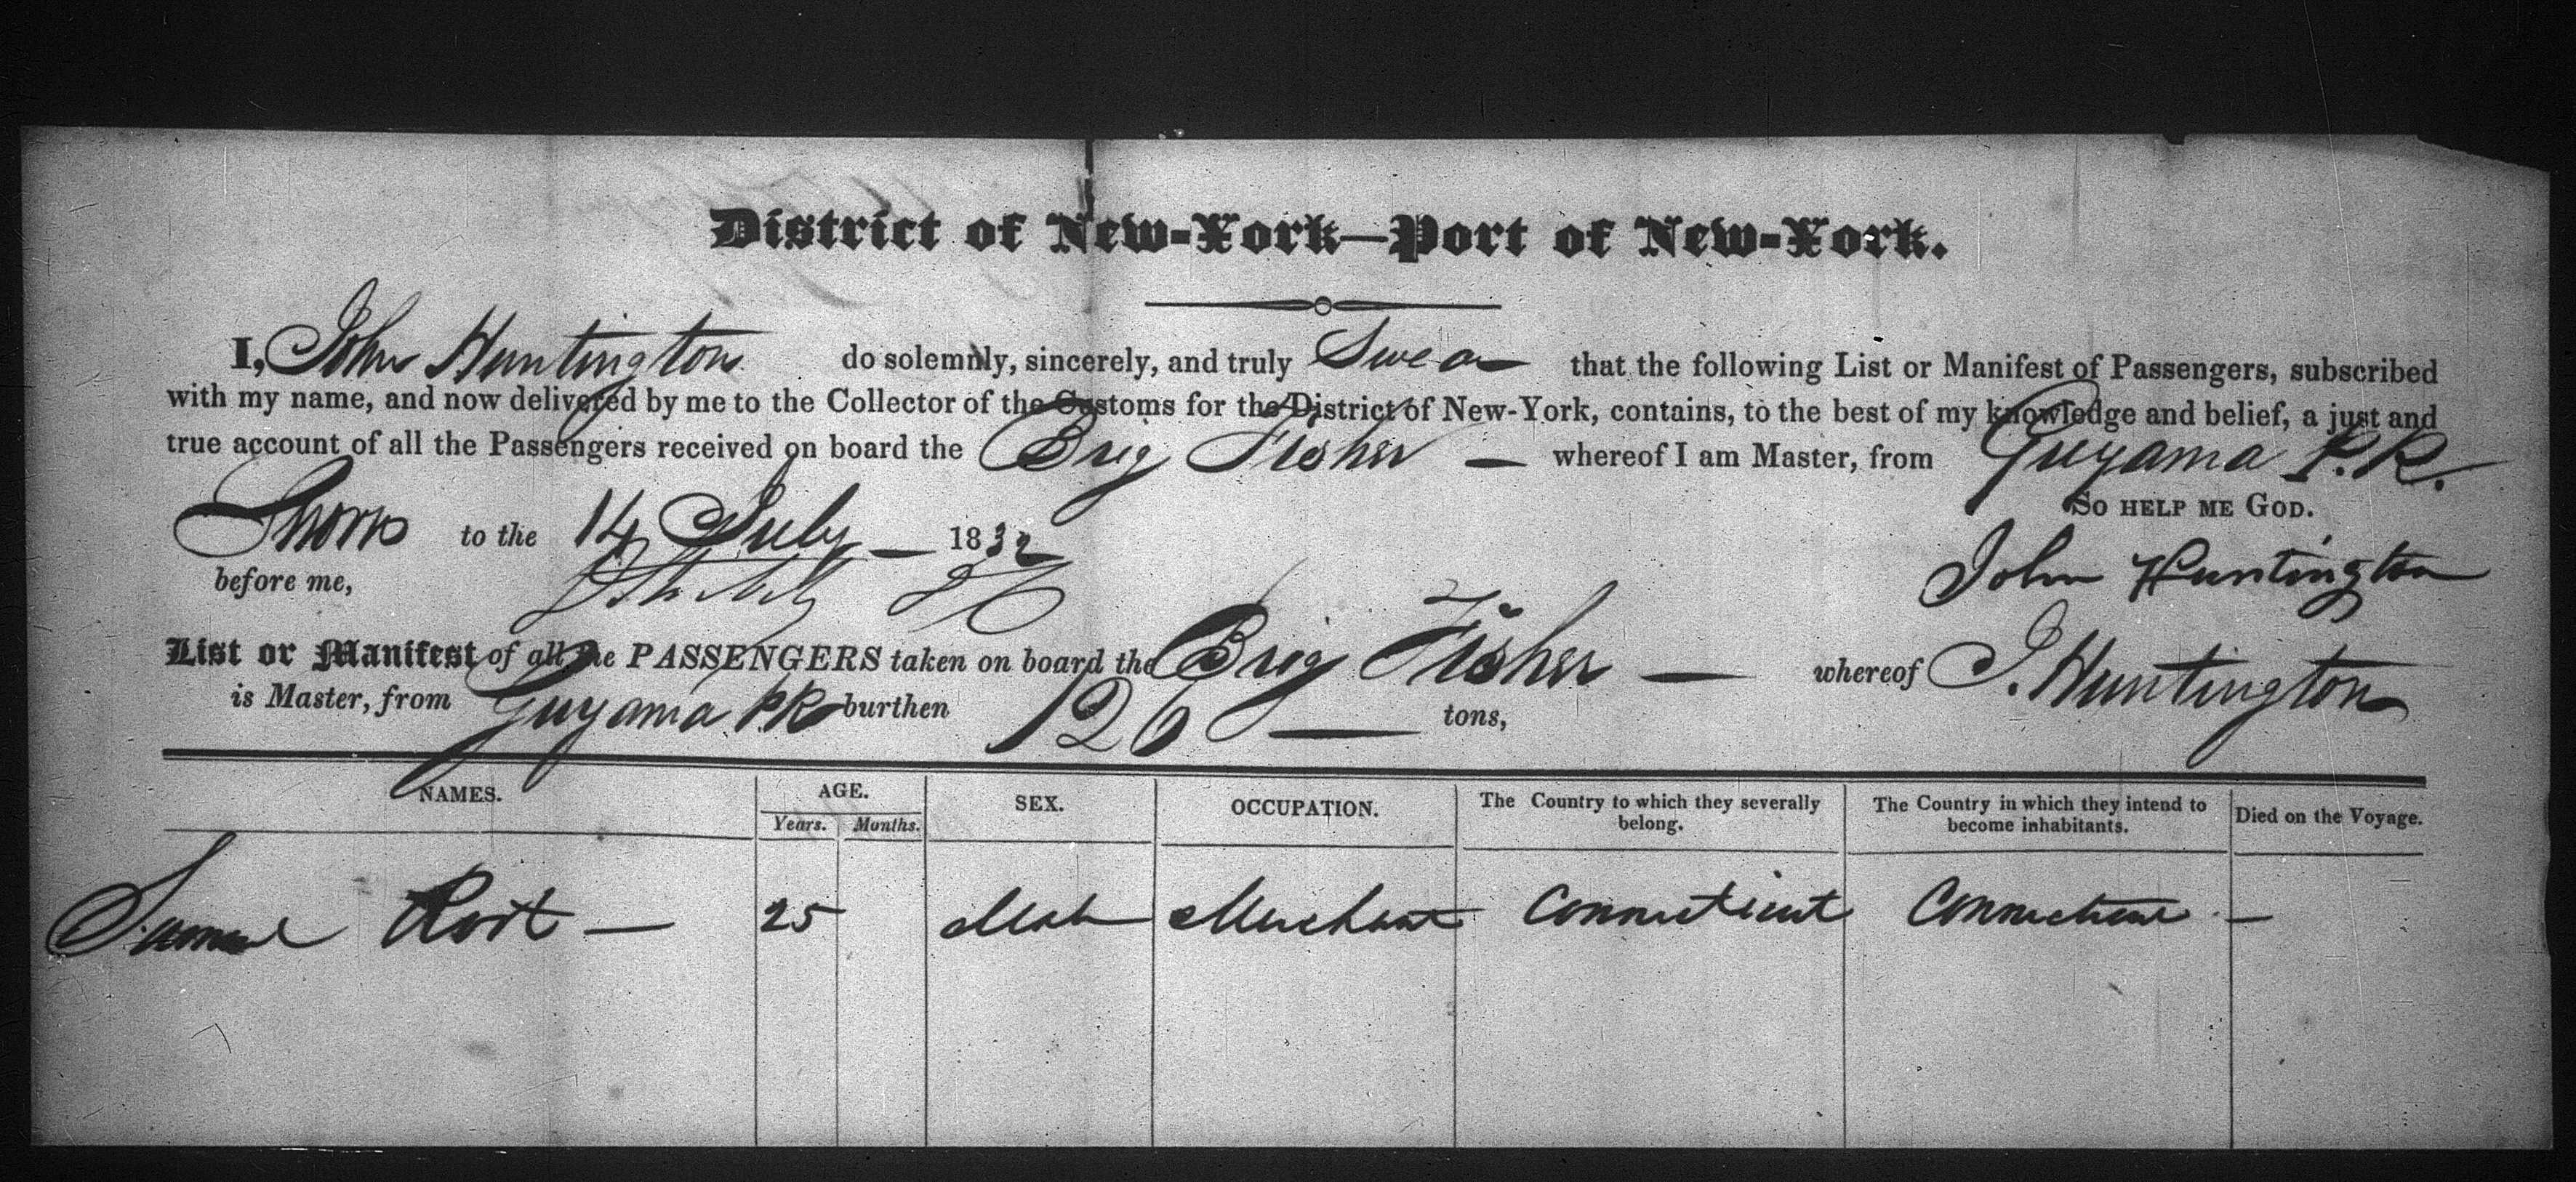 District of New-York—Port of New-York.
I, John Huntington do solemnly, sincerely, and truly Swear that the following List or Manifest of Passengers, subscribed
with my name, and now delivered by me to the Collector of the Customs for the District of New-York, contains, to the best of my knowledge and belief, a just and
true account of all the Passengers received on board the Brig Fisher — whereof I am Master, from Guyama P.R.
So help me God.
Sworn to the 14 July — 1832
before me,
John Huntington
List or Manifest of all the PASSENGERS taken on board the Brig Fisher — whereof J. Huntington
is Master, from Guyama PR burthen 126 — tons,
NAMES. AGE. SEX. OCCUPATION. The Country to which they severally belong. The Country in which they intend to become inhabitants. Died on the Voyage.
Years. Months.
Samuel Root — 25 Male Merchant Connecticut Connecticut —